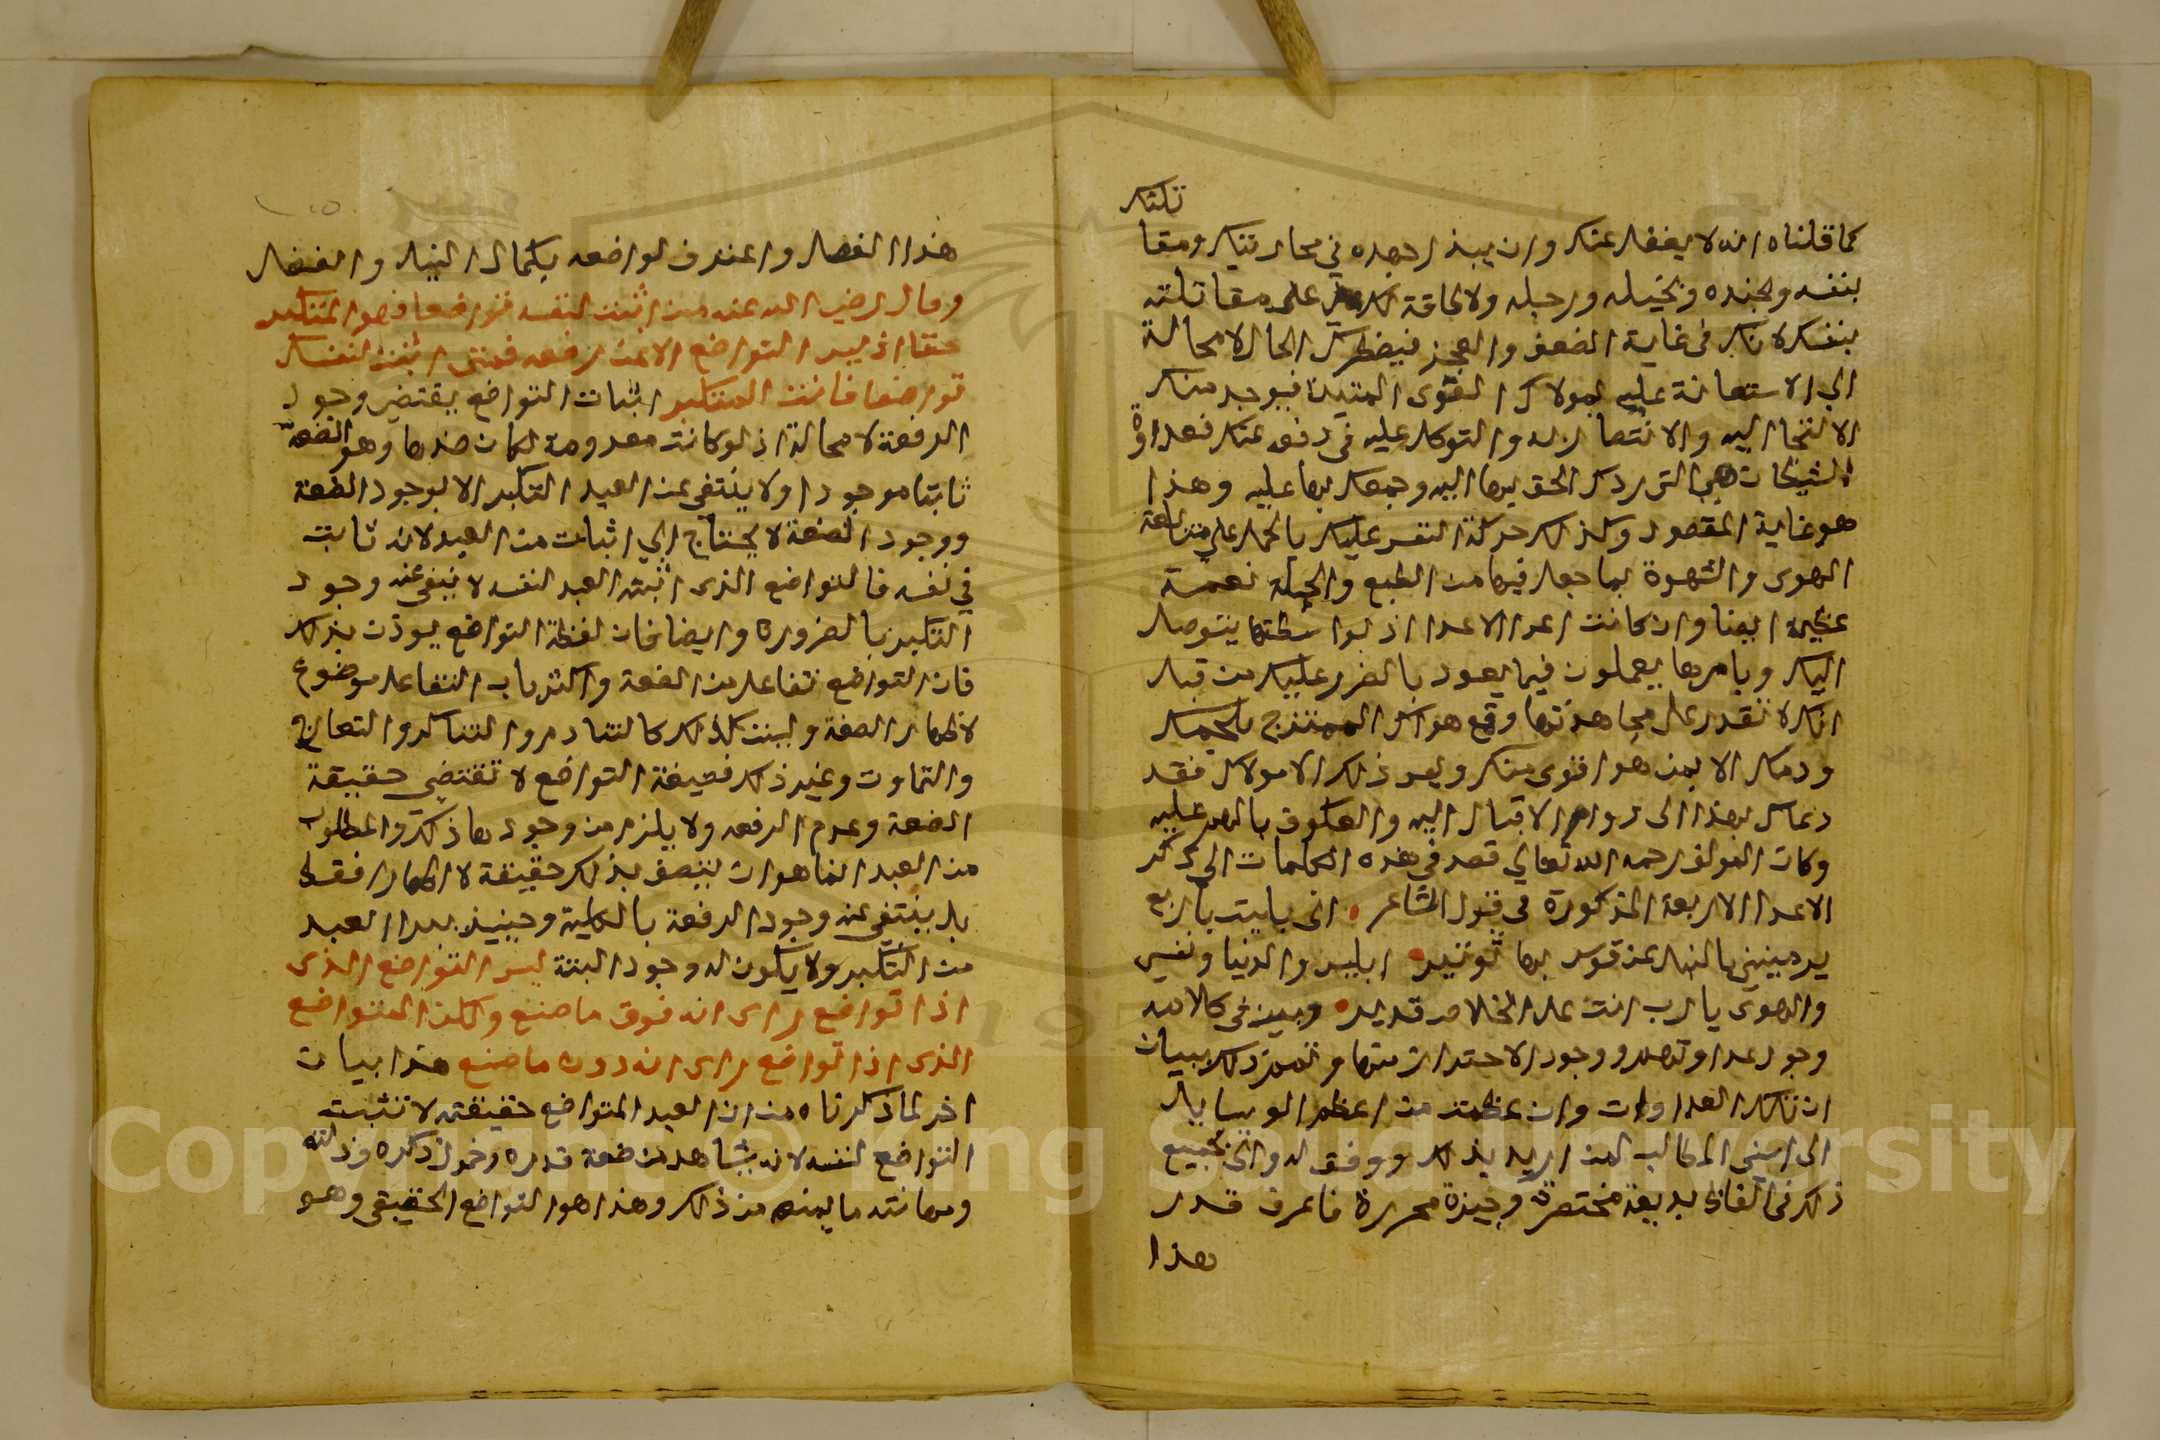 كما قلناه انه لا يغفل عنك وان يبذل جهده في محاربتك ومقاتلتك
بنفسه وبجنده وبخيله ورجله ولا طاقة لك على مقاتلته
بنفسك لانك في غاية الضعف والعجز فيضطرك الحال لا محالة
الي الاستعانة عليه بمولاك القوى المتين فيوجد منك
الالتجا اليه والانتصار له والتوكل عليه في دفعه عنك فعداوة
الشيطان هي التي ردك الحق بها اليه وجمعك بها عليه وهذا
هو غاية المقصود وكذلك حركة النفس عليك بالحمل علي متابعة
الهوى والشهوة لما جعل فيها من الطبع والجبلة نعمة
عظيمة ايضا وان كانت اعدا الاعدا اذ بواسطتها يتوصل
اليك وبامرها يعملون فيما يعود بالضرر عليك من قبل
انك لا تقدر على مجاهدتها وقمع هواك الممتزج بلحمك
ودمك الا بمن هو اقوى منك وليس ذلك الا مولاك فقد
دعاك بهذا الى دوام الاقبال اليه والعكوف بالهم عليه
وكان المولف رحمه الله تعالي قصد في هذه الكلمات الي ذكر
الاعدا الاربعة المذكورة في قول الشاعر اني بليت باربع
يرمينني بالنبل عن قوس لها توتير ابليس والدنيا ونفسي
والهوى يا رب انت على الخلاص قدير وبين في كلامه
وجود عداوتهم ووجود الاحتراز منها وتمم ذلك ببيان
ان تلك العداوات وان عظمت من اعظم الوسايل
الى اسني المطالب لمن اريد بذلك ووفق له واتى بجميع
ذلك في الفاظ بديعة مختصرة وجيزة محررة فاعرف قدر
هذا
هذا الفصل واعترف لواضعه بكمال النبل والفضل
وقال رضي الله عنه من اثبت لنفسه تواضعا فهو المتكبر
حقا اذ ليس التواضع الا عن رفعه فمتى اثبت لنفسك
تواضعا فانت المتكبر اثبات التواضع يقتضي وجود
الرفعة لا محالة اذ لو كانت معدومة لكان ضدها وهو الضعة
ثابتا موجودا ولا ينتفي عن العبد التكبر الا بوجود الضعة
ووجود الضعة لا يحتاج الي اثبات من العبد لانه ثابت
في نفسه فالتواضع الذي اثبته العبد لنفسه لا ينفي عنه وجود
التكبر بالضرورة وايضا فان لفظة التواضع يوذن بذلك
فان التواضع تفاعل من الضعة واكثر باب التفاعل موضوع
لاظهار الصفة وليست كذلك كالتنادم والتناكر والتعارج
والتماوت وغير ذلك فصيغة التواضع لا تقتضي حقيقة
الضعة وعدم الرفعه ولا يلزم من وجودها ذلك والمطلوب
من العبد انما هو ان يتصف بذلك حقيقة لا اظهارا فقط
بل ينتفي عنه وجود الرفعة بالكلية وحينيذ يبرا العبد
من التكبر ولا يكون له وجود البتة ليس التواضع الذي
اذا تواضع راى انه فوق ما صنع ولكن المتواضع
الذى اذا تواضع راى انه دون ما صنع هذا بيان
اخر لما ذكرناه من ان العبد المتواضع حقيقة لا تثبت
التواضع لنفسه لانه يشاهد من ضعة قدره وخمول ذكره وذلته
ومهانته ما يمنعه من ذلك وهذا هو التواضع الحقيقي وهو
Copyright © King Saud University